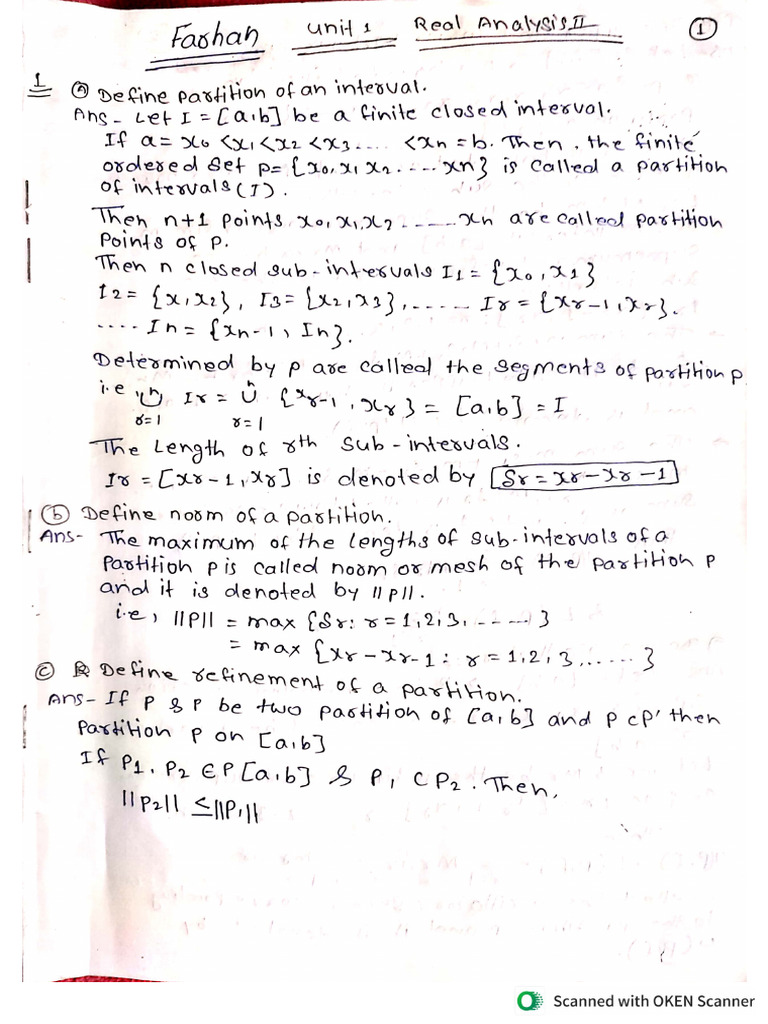 Farhan unit 1 Real Analysis II 1
1 (A) Define partition of an interval.
Ans - Let I = [a,b] be a finite closed interval.
If a = x0 < x1 < x2 < x3 .... < xn = b. Then, the finite
ordered set P = {x0, x1 x2 ..... xn} is called a partition
of intervals (I).
Then n+1 points x0, x1, x2 ...... xn are called partition
Points of P.
Then n closed sub-intervals I1 = {x0, x1}
I2 = {x, x2}, I3 = {x2, x3}, ...... Ir = {xr-1, xr}.
.... In = {xn-1, In}.
Determined by P are called the segments of partition p
i.e n∪r=1 Ir = n∪r=1 {xr-1, xr} = [a,b] = I
The Length of rth sub-intervals.
Ir = [xr-1, xr] is denoted by Sr = xr - xr-1
(b) Define norm of a partition.
Ans- The maximum of the lengths of sub-intervals of a
Partition P is called norm or mesh of the partition P
and it is denoted by ||P||.
i.e, ||P|| = max {Sr: r = 1,2,3, ......}
= max {xr - xr-1: r = 1,2,3,......}
(C) Define refinement of a partition.
Ans- If P & P be two partition of [a,b] and P ⊂ P' then
Partition P on [a,b]
If P1, P2 ∈ P[a,b] & P1 ⊂ P2. Then,
||P2|| ≤ ||P1||
Scanned with OKEN Scanner